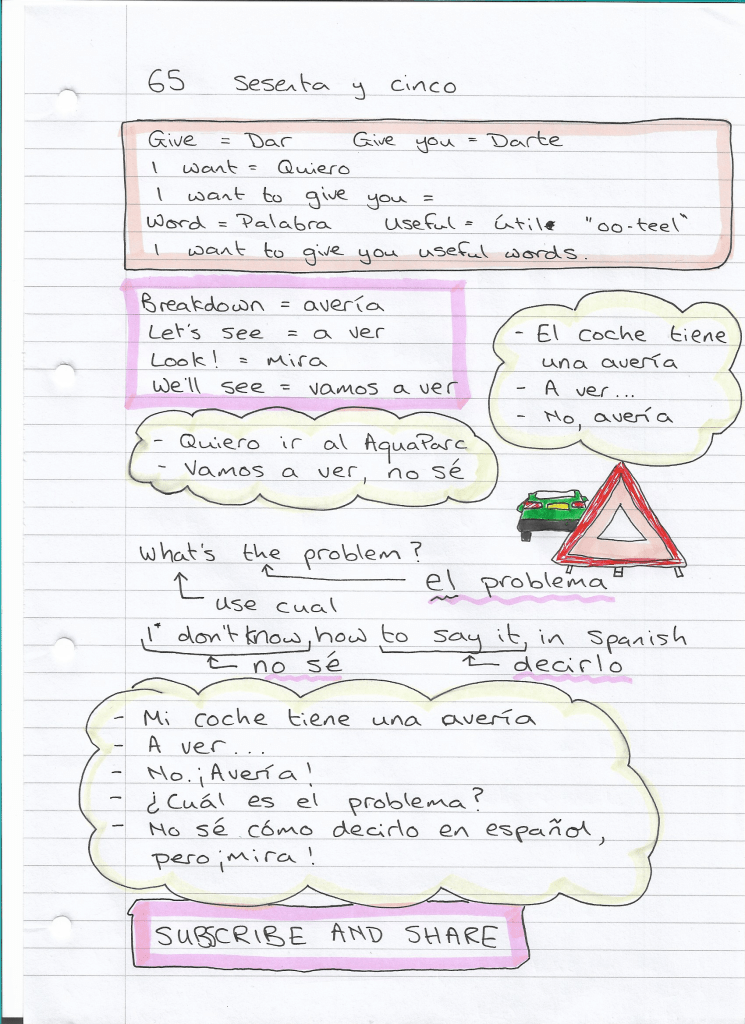 65 Sesenta y cinco
Give = Dar Give you = Darte
I want = Quiero
I want to give you =
Word = Palabra Useful = útil "oo-teel"
I want to give you useful words.
Breakdown = avería
Let's see = a ver
Look! = Mira
We'll see = vamos a ver
- El coche tiene
una avería
- A ver...
- No, avería
- Quiero ir al AquaParc
- Vamos a ver, no sé
What's the problem?
el problema
use cual
I don't know, how to say it, in Spanish
no sé decirlo
- Mi coche tiene una avería
- A ver...
- No. ¡Avería!
- ¿Cuál es el problema?
- No sé cómo decirlo en español,
pero ¡mira!
SUBSCRIBE AND SHARE